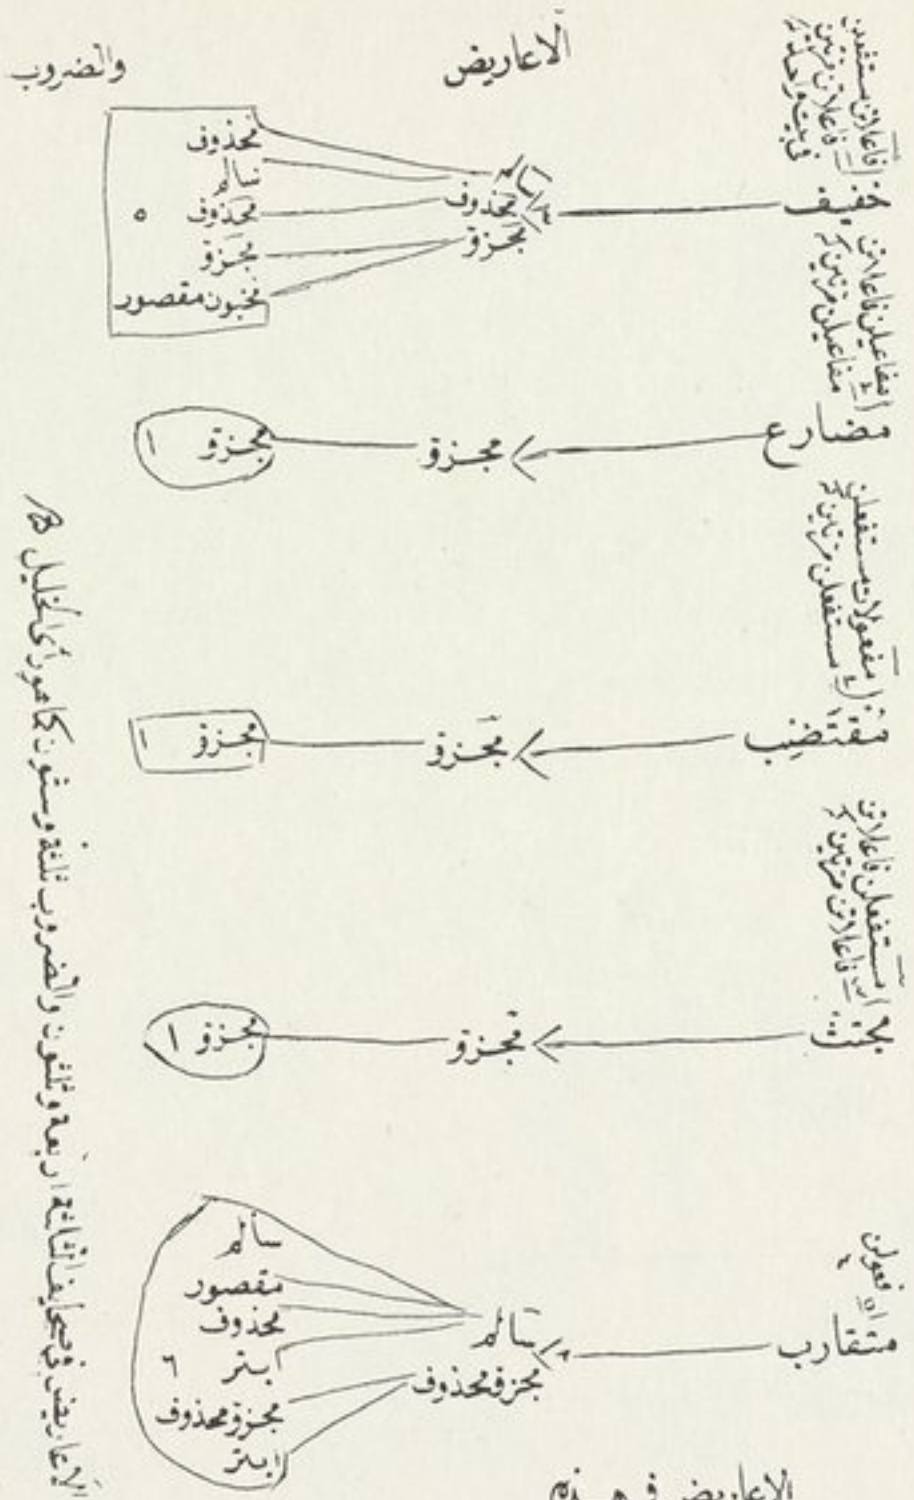 الاعاريض
والضروب
فاعلاتن مستفعلن
فاعلاتن مرتين
في بيت واحد
خفيف
سالم
محذوف
مجزؤ
محذوف
سالم
محذوف
مجزؤ
مخبون مقصور
٥
مفاعيلن فاعلاتن
مفاعيلن مرتين
مضارع
مجزؤ
مجزؤ ١
مفعولات مستفعلن
مستفعلن مرتين
مقتضب
مجزؤ
مجزؤ ١
مستفعلن فاعلاتن
فاعلاتن مرتين
مجتث
مجزؤ
مجزؤ ١
فعولن
متقارب
سالم
مجزؤ محذوف
سالم
مقصور
محذوف
ابتر
مجزؤ محذوف
ابتر
٦
الاعاريض في صحايف الثلثة اربعة وثلثون والضروب ثلثة وستون كما هو رأى الخليل
الاعاريض في هذه